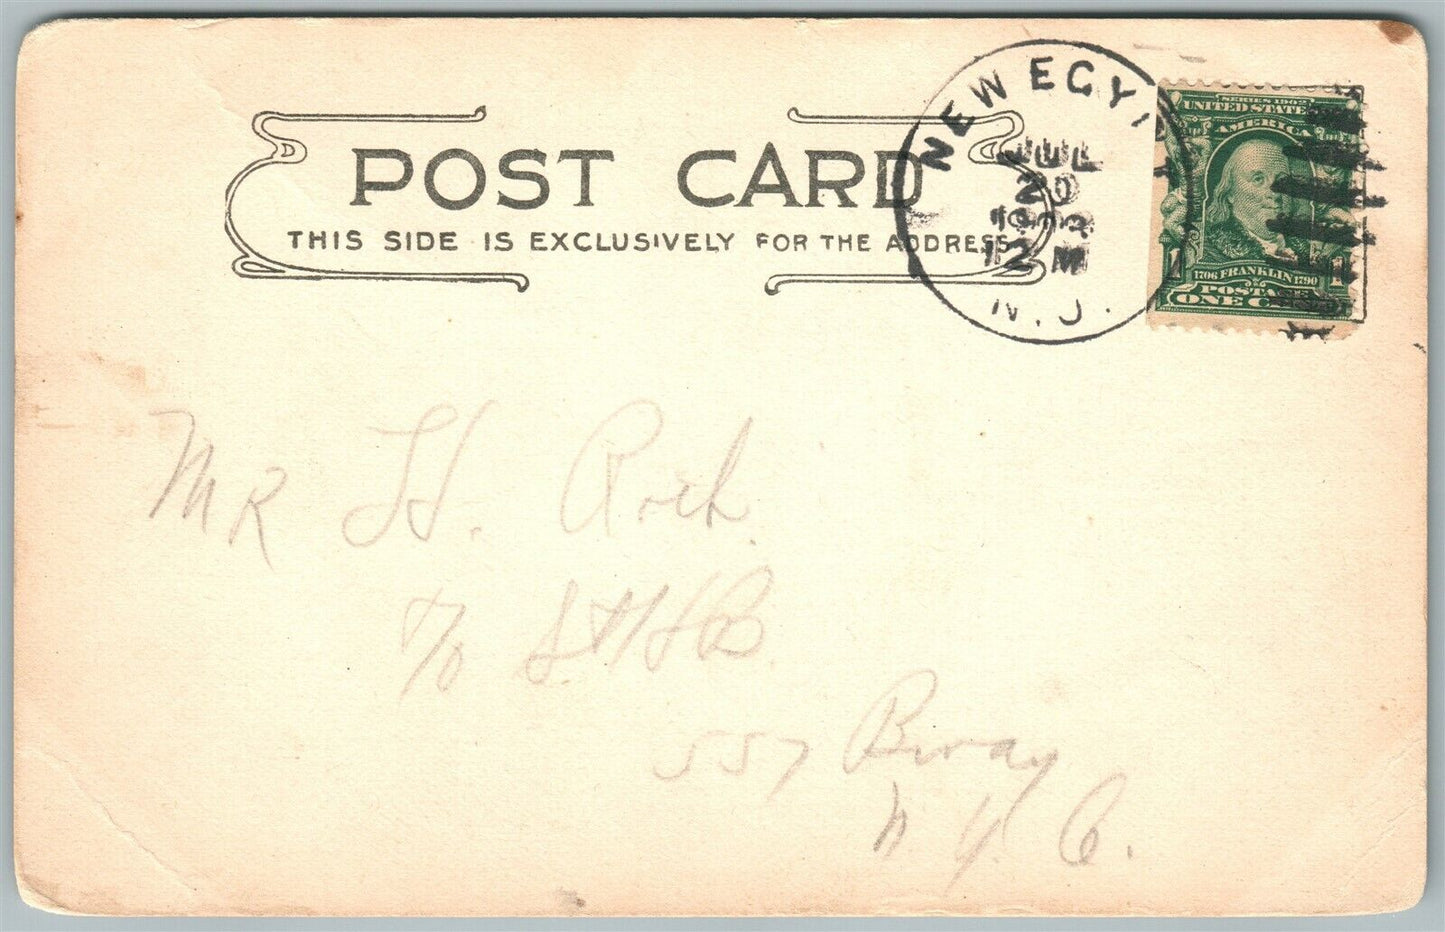 POST CARD
THIS SIDE IS EXCLUSIVELY FOR THE ADDRESS
NEW EGYPT
JUL
20
12 M
N.J.
SERIES 1902
UNITED STATES
AMERICA
1706 FRANKLIN 1790
POSTAGE
1 ONE C 1
MR H.
c/o
557 Bway
N.Y.C.